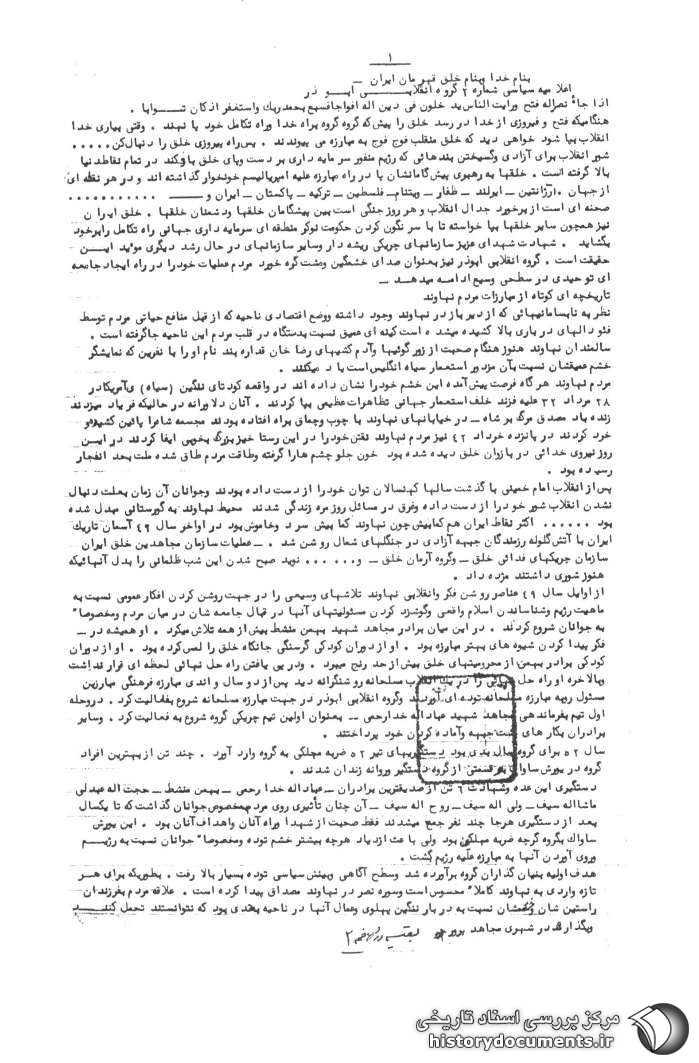 ۱
بنام خدا وبنام خلق قهرمان ایران ــ
اعلامیه سیاسی شماره ۲ گروه انقلابــــی ابــوذر
اذا جاﺀ نصراله فتح ورایت الناس ید خلون فی دین اله افواجا فسبح بحمد ربک واستغفر اذکان تــوابا .
هنگامیکه فتح و فیروزی از خدا در رسد خلق را بیش که گروه گروه براه خدا وراه تکامل خود پا نهند . وقتی بیاری خدا
انقلاب بپا شود خواهی دید که خلق منقلب فوج فوج به مبارزه می پیوندند . پس راه پیروزی خلق را دنبال کن.....
شور انقلاب برای آزادی وگسیختن بندهائی که رژیم منفور سرمایه داری بر دست وپای خلق باوکند در تمام نقاط دنیا
بالا گرفته است . خلقها به رهبری پیش گامانشان پا در راه مبارزه علیه امپریالیسم خونخوار گذاشته اند و در هر نقطه ای
از جهان .ارژانتین ــ ایرلند ــ ظفار ــ ویتنام ــ فلسطین ــ ترکیه ــ پاکستان ــ ایران و ــــ ...........
صحنه ای است از برخورد جدال انقلاب و هر روز جنگی است بین پیشگامان خلقها ودشمنان خلقها . خلق ایران
نیز همچون سایر خلقها بپا خواسته تا با سر نگون کردن حکومت نوکر منطقه ای سرمایه داری جهانی راه تکامل رابرخود
بگشاید . شهادت شهدای عزیز سازمانهای چریکی ریشه دار وسایر سازمانهای در حال رشد دیگری موئید ایــن
حقیقت است . گروه انقلابی ابوذر نیز بعنوان صدای خشمگین ومشت گره خورد مردم عملیات خودرا در راه ایجاد جامعه
ای تو حیدی در سطحی وسیع ادامه میدهــد ــ
تاریخچه ای کوتاه از مبارزات مردم نهاوند
نظر به نابسامانیهائی که از دیر باز در نهاوند وجود داشته ووضع اقتصادی ناحیه که از قبل منافع حیاتی مردم توسط
فئودالهای درباری بالا کشیده میشده است کینه ای عمیق نسبت بدستگاه در قلب مردم این ناحیه جاگرفته است .
سالمندان نهاوند هنوز هنگام صحبت از زور گوئیها وآدم کشیهای رضا خان قداره بند نام او را با نفرین که نمایشگر
خشم عمیقشان نسبت بآن مزدور استعمار سیاه انگلیس است یاد میکنند .
مردم نهاوند هر گاه فرصت پیش آمده این خشم خودرا نشان داده اند در واقعه کودتای ننگین (سیاه) ی آمریکادر
۲۸ مرداد ۳۲ علیه فرزند خلف استعمار جهانی تظاهرات عظیمی بپا کردند . آنان دلاورانه در حالیکه فریاد میزدند
زنده باد مصدق مرگ بر شاه ــ در خیابانهای نهاوند با چوب وچماق براه افتاده بودند مجسمه شاه را پائین کشیدو
خرد کردند در پانزده خرداد ۴۲ نیز مردم نهاوند نقش خودرا در این رستا خیز بزرگ بخوبی ایفا کردند در ایــن
روز نیروی خدائی در بازوان خلق دیده شده بود خون جلو چشم هارا گرفته وطاقت مردم طاق شده ملت بحد انفجار
رسیده بود .
پس از انقلاب امام خمینی با گذشت سالها کهنسالان توان خودرا از دست داده بودند وجوانان آن زمان بعلت دنبال
نشدن انقلاب شور خودرا از دست داده وغرق در مسائل روزمره زندگی شدند محیط نهاوند به گورستانی مبدل شده
بود ...... اکثر نقاط ایران هم کمابیش چون نهاوند کما پیش سرد وخاموش بود در اواخر سال ۴۹ آسمان تاریک
ایران با آتش گلوله رزمندگان جبهه آزادی در جنگلهای شمال روشن شد . ــ عملیات سازمان مجاهدین خلق ایران
سازمان چریکهای فدائی خلق ــ وگروه آرمان خلق ــ و...... نوید صبح شدن این شب ظلمانی را بدل آنهائیکه
هنوز شوری داشتند مژده داد .
از اوایل سال ۴۹ عناصر روشن فکر وانقلابی نهاوند تلاشهای وسیعی را در جهت روشن کردن افکار عمومی نسبت به
ماهیت رژیم وشناساندن اسلام واقعی وگوشزد کردن مسئولیتهای آنها در قبال جامعه شان در میان مردم ومخصوصا"
به جوانان شروع کردند . در این میان برادر مجاهد شهید بهمن منشط بیش از همه تلاش میکرد . او همیشه در ــ
فکر پیدا کردن شیوه های بهتر مبارزه بود . او از دوران کودکی گرسنگی جانکاه خلق را لمس کرده بود . او از دوران
کودکی برادر بهمن از محرومیتهای خلق بیش از حد رنج میبرد . ودر پی یافتن راه حل نهائی لحظه ای قرار نداشت
وبالاخره او راه حل نهایی را در یک انقلاب مسلحانه روشنگرانه دید پس از دو سال و اندی مبارزه فرهنگی مبارزین
مسئول روبه مبارزه مسلحانه توده ای آوردند وگروه انقلابی ابوذر در جهت مبارزه مسلحانه شروع بفعالیت کرد . در وحله
اول تیم بفرماندهی مجاهد شهید عباد اله خدارحمی ــ بعنوان اولین تیم چریکی گروه شروع به فعالیت کرد . وسایر
برادران بکار های پشت جبهه وآماده کردن خود پرداختند .
سال ۵۲ برای گروه سال بدی بود دستگیریهای تیر ۵۲ ضربه مهلکی به گروه وارد آورد . چند تن از بهترین افراد
گروه در یورش ساواک به قسمتی از گروه دستگیر وروانه زندان شدند .
دستگیری این عده وشهادت ۶ تن از صدیقترین برادران ــ عباد اله خدا رحمی ــ بهمن منشط ــ حجت اله عبدلی
ماشااله سیف ــ ولی اله سیف ــ روح اله سیف ــ آن چنان تأثیری روی مردم بخصوص جوانان گذاشت که تا یکسال
بعد از دستگیری هرجا چند نفر جمع میشدند فقط صحبت از شهدا وراه آنان واهداف آنان بود . این یورش
ساواک بگروه گرچه ضربه مهلکی بود ولی باعث ازدیاد هرچه بیشتر خشم توده ومخصوصا" جوانان نسبت به رژیــم
وروی آوردن آنها به مبارزه علیه رژیم گشت .
هدف اولیه بنیان گذاران گروه برآورده شد وسطح آگاهی وبینش سیاسی توده بسیار بالا رفت . بطوریکه برای هــر
تازه واردی به نهاوند کاملا" محسوس است وسوره نصر در نهاوند مصداق پیدا کرده است . علاقه مردم بفرزندان
راستین شان وخشمشان نسبت به دربار ننگین پهلوی وعمال آنها در ناحیه بحدی بود که نتوانستند تحمل کننــد
وبگذارند در شهری مجاهد پرور
بقیه در صفحه ۲
مرکز بررسی اسناد تاریخی
historydocuments.ir